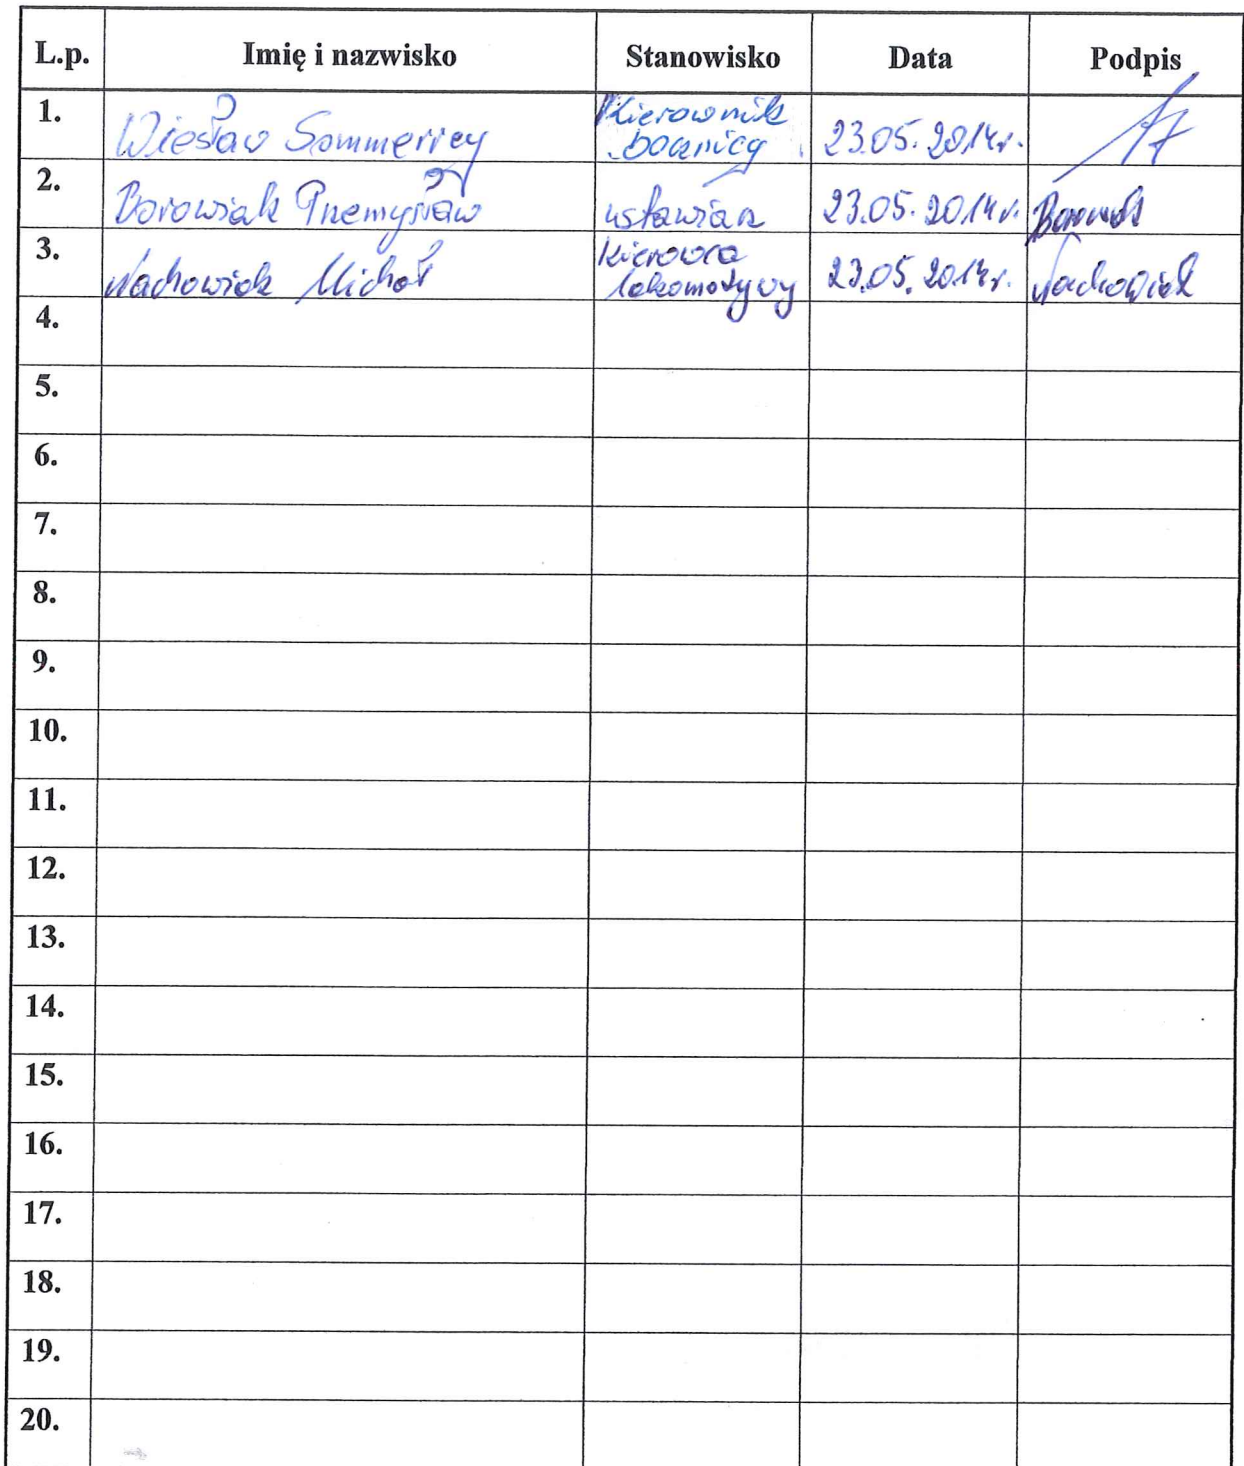 L.p. Imię i nazwisko Stanowisko Data Podpis
1. Wiesław Kierownik bocznicy 23.05.2014r.
2. Borowiak Przemysław ustawiacz 23.05.2014r. Borowiak
3. Nachowiak Michał Kierowca lokomotywy 23.05.2014r. Nachowiak
4.
5.
6.
7.
8.
9.
10.
11.
12.
13.
14.
15.
16.
17.
18.
19.
20.